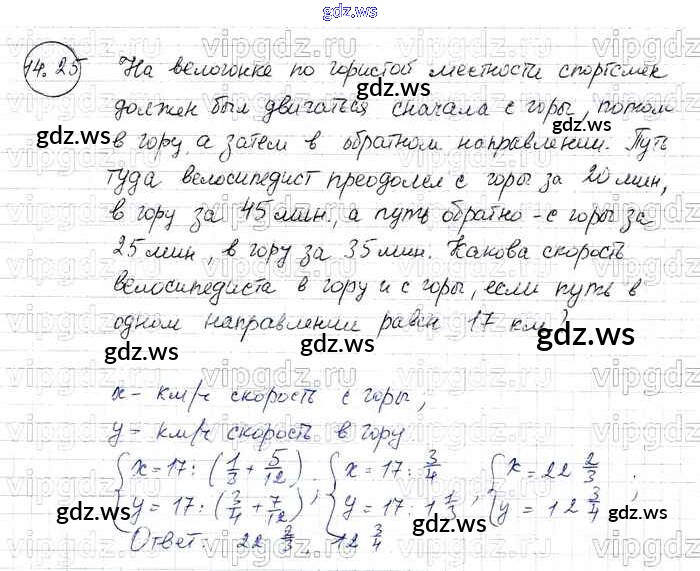 gdz.ws
14.25 На велогонке по гористой местности спортсмен
должен был двигаться сначала с горы, потом
в гору, а затем в обратном направлении. Путь
туда велосипедист преодолел с горы за 20 мин,
в гору за 45 мин., а путь обратно - с горы за
25 мин, в гору за 35 мин. Какова скорость
велосипедиста в гору и с горы, если путь в
одном направлении равен 17 км?
x - км/ч скорость с горы,
y = км/ч скорость в гору
{ x = 17 : (1/3 + 5/12) ; { x = 17 : 3/4 ; { x = 22 2/3 ;
{ y = 17 : (3/4 + 7/12) ; { y = 17 : 1 1/3 ; { y = 12 3/4
Ответ: 22 2/3, 12 3/4